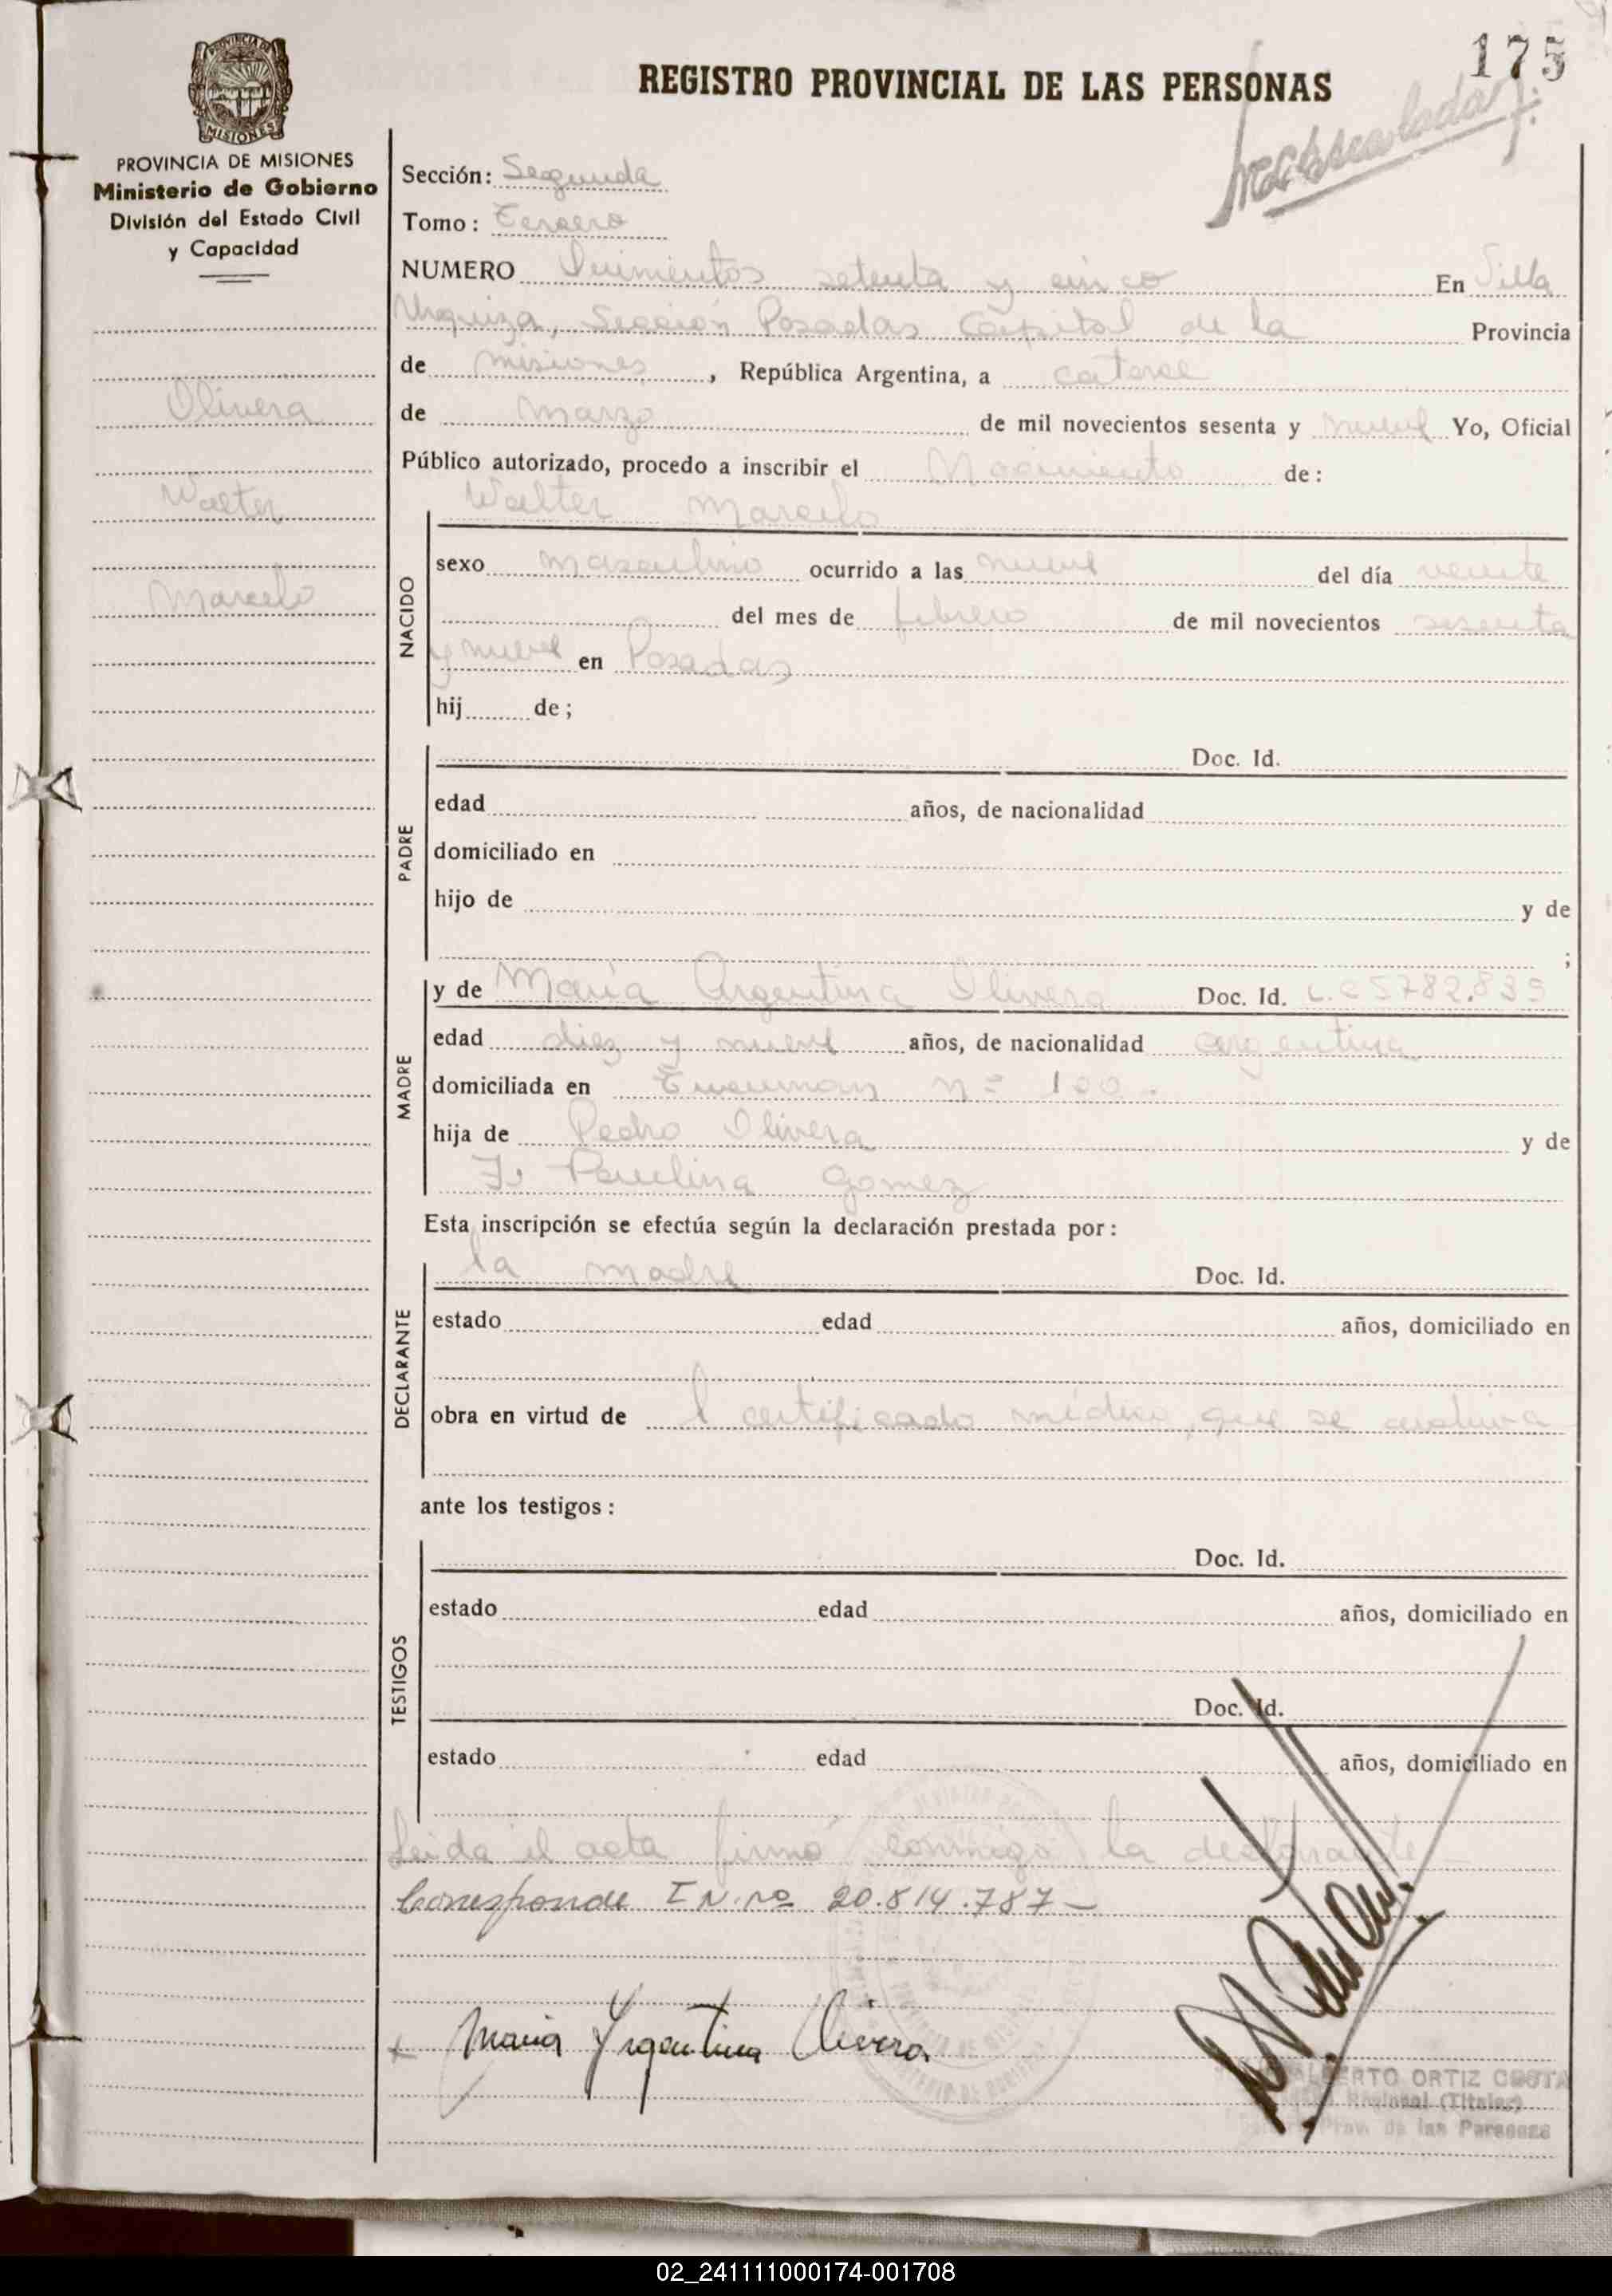 175
REGISTRO PROVINCIAL DE LAS PERSONAS
PROVINCIA DE MISIONES
Ministerio de Gobierno
División del Estado Civil
y Capacidad
Olivera
Walter
Marcelo
Sección: Segunda
Tomo: Tercero
NUMERO Quinientos setenta y cinco En Villa
Urquiza, Sección Posadas Capital de la Provincia
de Misiones, República Argentina, a catorce
de Marzo de mil novecientos sesenta y nueve Yo, Oficial
Público autorizado, procedo a inscribir el Nacimiento de:
NACIDO
Walter Marcelo
sexo masculino ocurrido a las nueve del día veinte
del mes de febrero de mil novecientos sesenta
y nueve en Posadas
hij de;
PADRE
Doc. Id.
edad años, de nacionalidad
domiciliado en
hijo de y de
;
MADRE
y de María Argentina Olivera Doc. Id. L.C 5782.835
edad diez y nueve años, de nacionalidad argentina
domiciliada en Tucuman nº 100.
hija de Pedro Olivera y de
Paulina Gomez
Esta inscripción se efectúa según la declaración prestada por:
DECLARANTE
la madre Doc. Id.
estado edad años, domiciliado en
obra en virtud de l certificado médico, que se archiva
ante los testigos:
TESTIGOS
Doc. Id.
estado edad años, domiciliado en
Doc. Id.
estado edad años, domiciliado en
Leida el acta firmó conmigo la declarante
Corresponde I N. nº 20.814.787-
Maria Argentina Olivera
ALBERTO ORTIZ COSTA
(Titular)
Prov. de las Personas
02_241111000174-001708